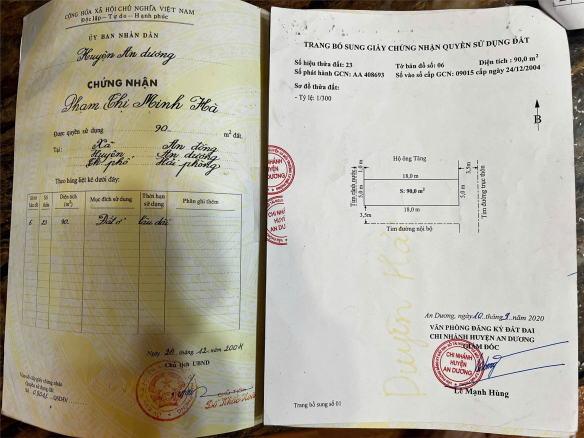 CỘNG HÒA XÃ HỘI CHỦ NGHĨA VIỆT NAM
Độc lập - Tự do - Hạnh phúc
ỦY BAN NHÂN DÂN
Huyện An dương
CHỨNG NHẬN
Phạm Thị Minh Hà
Được quyền sử dụng 90 m² đất.
Tại: Xã An đồng
Huyện An dương
Th. phố Hải phòng
Theo bảng liệt kê dưới đây:
Số tờ bản đồ Số thửa Diện tích (m²) Mục đích sử dụng Thời hạn sử dụng Phần ghi thêm
6 23 90 Đất ở Lâu dài
Ngày 24 .12 .2004
Chủ tịch UBND
Vào sổ cấp giấy chứng nhận
Quyền sử dụng đất
TRANG BỔ SUNG GIẤY CHỨNG NHẬN QUYỀN SỬ DỤNG ĐẤT
Số hiệu thửa đất: 23 Tờ bản đồ số: 06 Diện tích: 90,0 m²
Số phát hành GCN: AA 408693 Số vào sổ cấp GCN: 09015 cấp ngày 24/12/2004
Sơ đồ thửa đất:
- Tỷ lệ: 1/300
B
Hộ ông Tăng
1,0m
18,0 m
3,5m
Tim rãnh nước
5,0 m
S: 90,0 m²
5,0 m
Tim đường trục thôn
18,0 m
3,5m
Tim đường nội bộ
CHI NHÁNH
HUYỆN
AN DƯƠNG
CHI NHÁNH
HUYỆN
AN DƯƠNG
Duyên Hà
An Dương, ngày 10 tháng 9 năm 2020
VĂN PHÒNG ĐĂNG KÝ ĐẤT ĐAI
CHI NHÁNH HUYỆN AN DƯƠNG
GIÁM ĐỐC
CHI NHÁNH
HUYỆN
AN DƯƠNG
Lê Mạnh Hùng
Trang bổ sung số 01